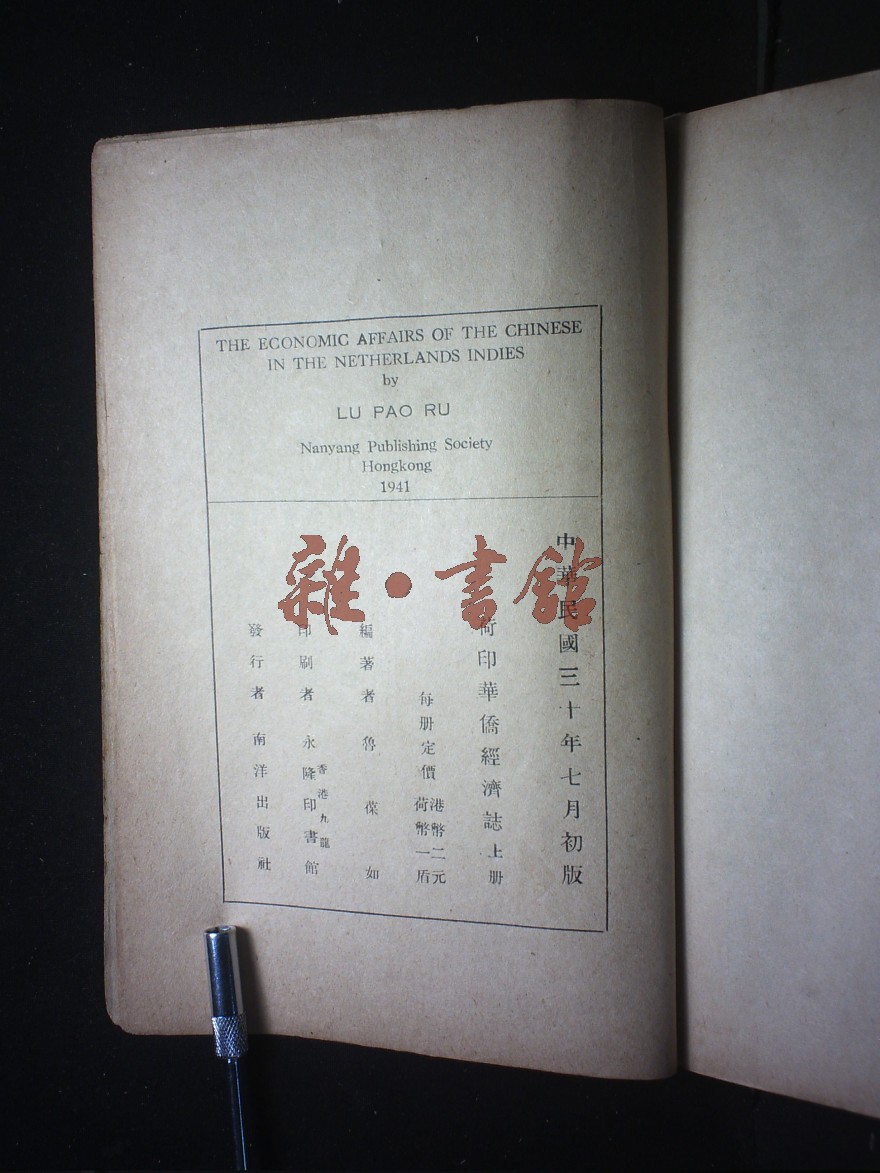 THE ECONOMIC AFFAIRS OF THE CHINESE
IN THE NETHERLANDS INDIES
by
LU PAO RU
Nanyang Publishing Society
Hongkong
1941
雜·書館
中華民國三十年七月初版
荷印華僑經濟誌 上册
每册定價 港幣二元
荷幣一盾
編著者 魯葆如
印刷者 永隆印書館
香港九龍
發行者 南洋出版社